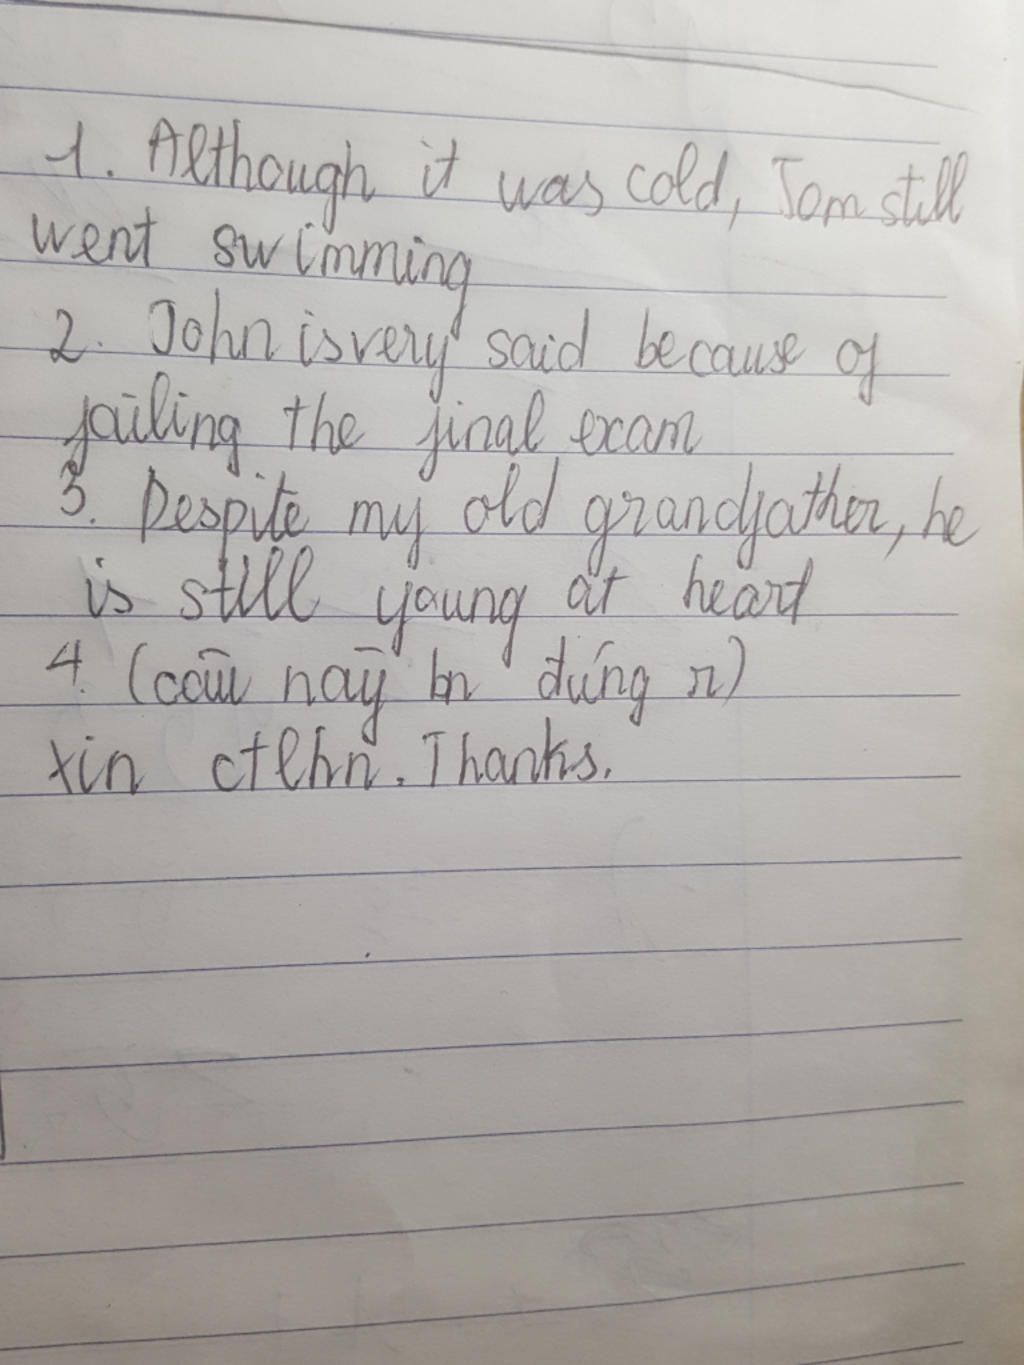 1. Although it was cold, Tom still
went swimming
2. John is very said because of
failing the final exam
3. Despite my old grandfather, he
is still young at heart
4. (câu này bn đúng r)
xin ctlhn. Thanks.